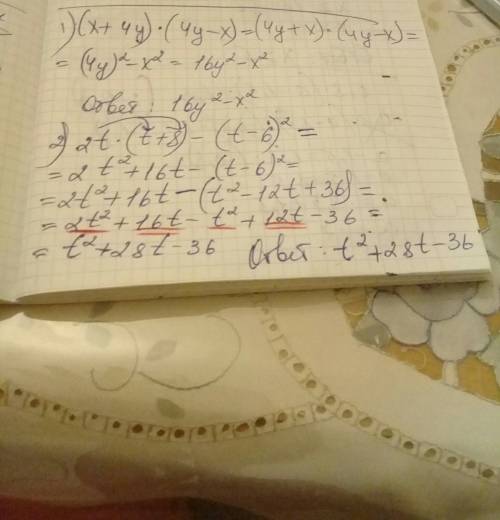 1) (x + 4y) · (4y - x) = (4y + x) · (4y - x) =
= (4y)² - x² = 16y² - x²
Ответ : 16y² - x²
2) 2t · (t + 8) - (t - 6)² =
= 2t² + 16t - (t - 6)² =
= 2t² + 16t - (t² - 12t + 36) =
= 2t² + 16t - t² + 12t - 36 =
= t² + 28t - 36 Ответ : t² + 28t - 36